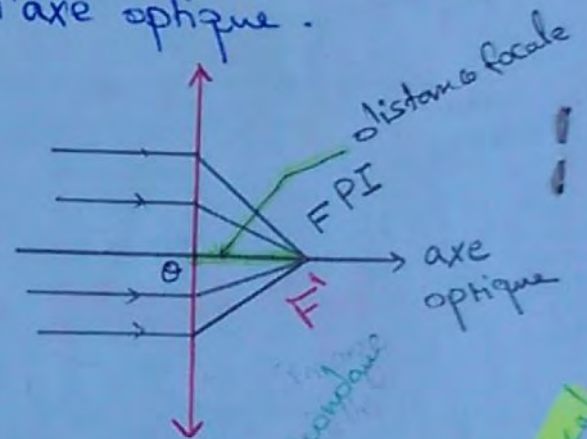 l'axe optique.
distance focale
F PI
axe
optique
O
F'